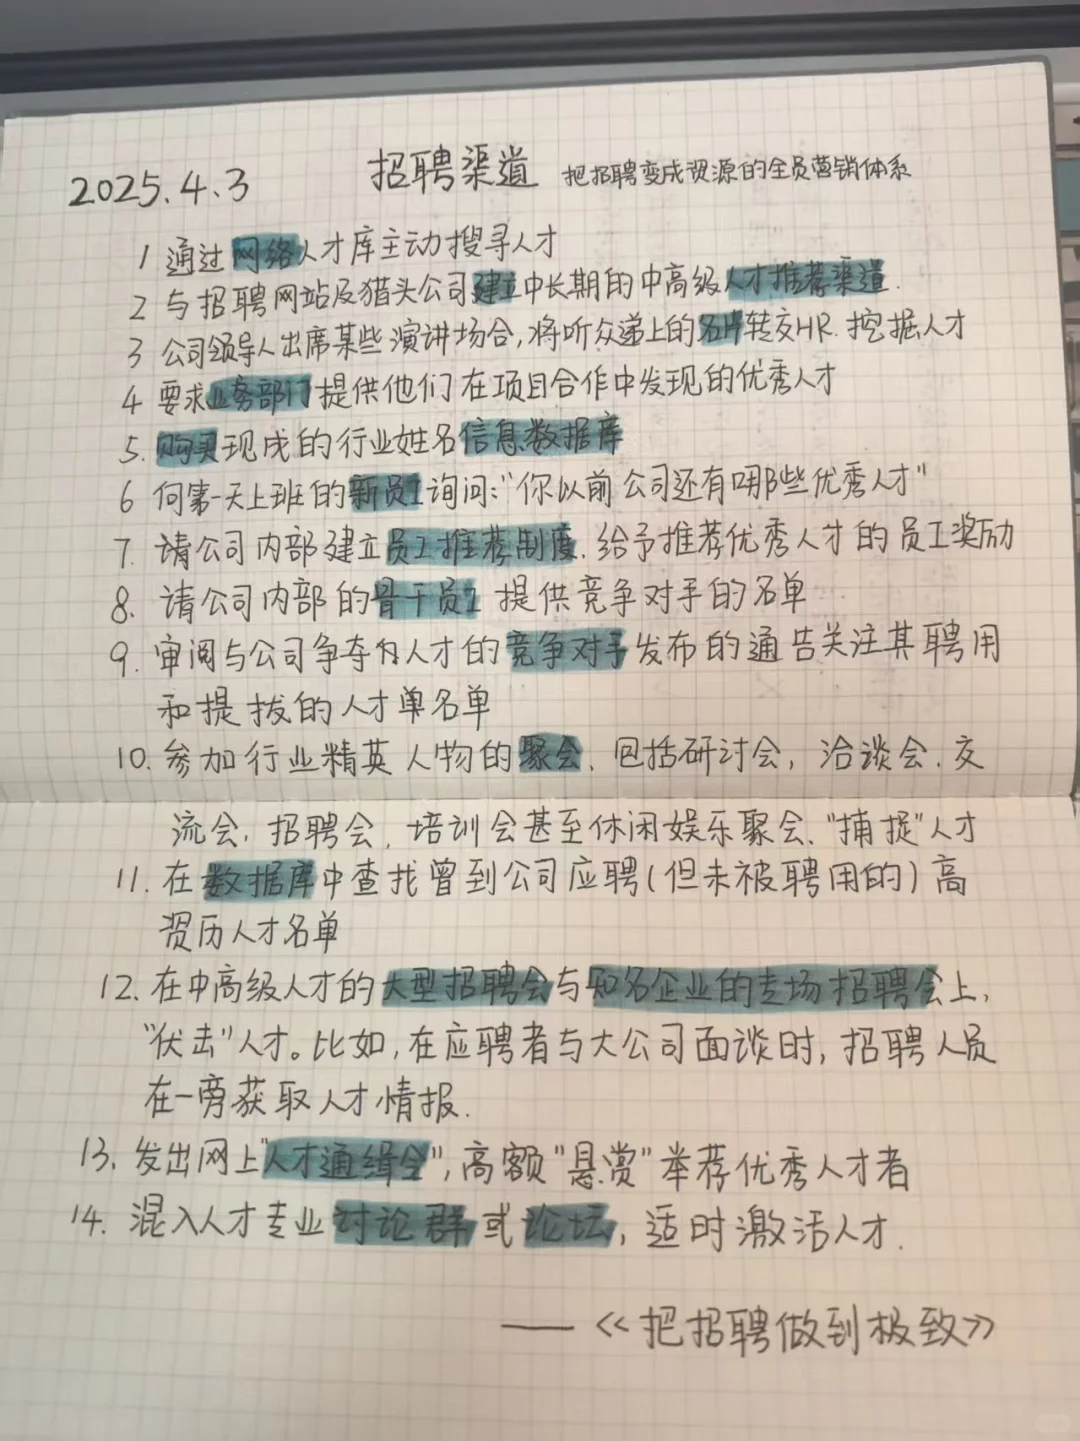 2025.4.3 招聘渠道 把招聘变成资源的全员营销体系
1 通过网络人才库主动搜寻人才
2 与招聘网站及猎头公司建立中长期的中高级人才推荐渠道.
3 公司领导人出席某些演讲场合,将听众递上的名片转交HR.挖掘人才
4 要求业务部门提供他们在项目合作中发现的优秀人才
5.购买现成的行业姓名信息数据库
6 向第一天上班的新员工询问:“你以前公司还有哪些优秀人才”
7.请公司内部建立员工推荐制度.给予推荐优秀人才的员工奖励
8.请公司内部的骨干员工提供竞争对手的名单
9.审阅与公司争夺人才的竞争对手发布的通告关注其聘用
和提拔的人才单名单
10.参加行业精英人物的聚会、包括研讨会,洽谈会.交
流会.招聘会.培训会甚至休闲娱乐聚会.“捕捉”人才
11.在数据库中查找曾到公司应聘(但未被聘用的)高
资历人才名单
12.在中高级人才的大型招聘会与知名企业的专场招聘会上,
“伏击”人才。比如,在应聘者与大公司面谈时,招聘人员
在一旁获取人才情报.
13.发出网上“人才通缉令”,高额“悬赏”举荐优秀人才者
14.混入人才专业讨论群或论坛,适时激活人才.
——《把招聘做到极致》